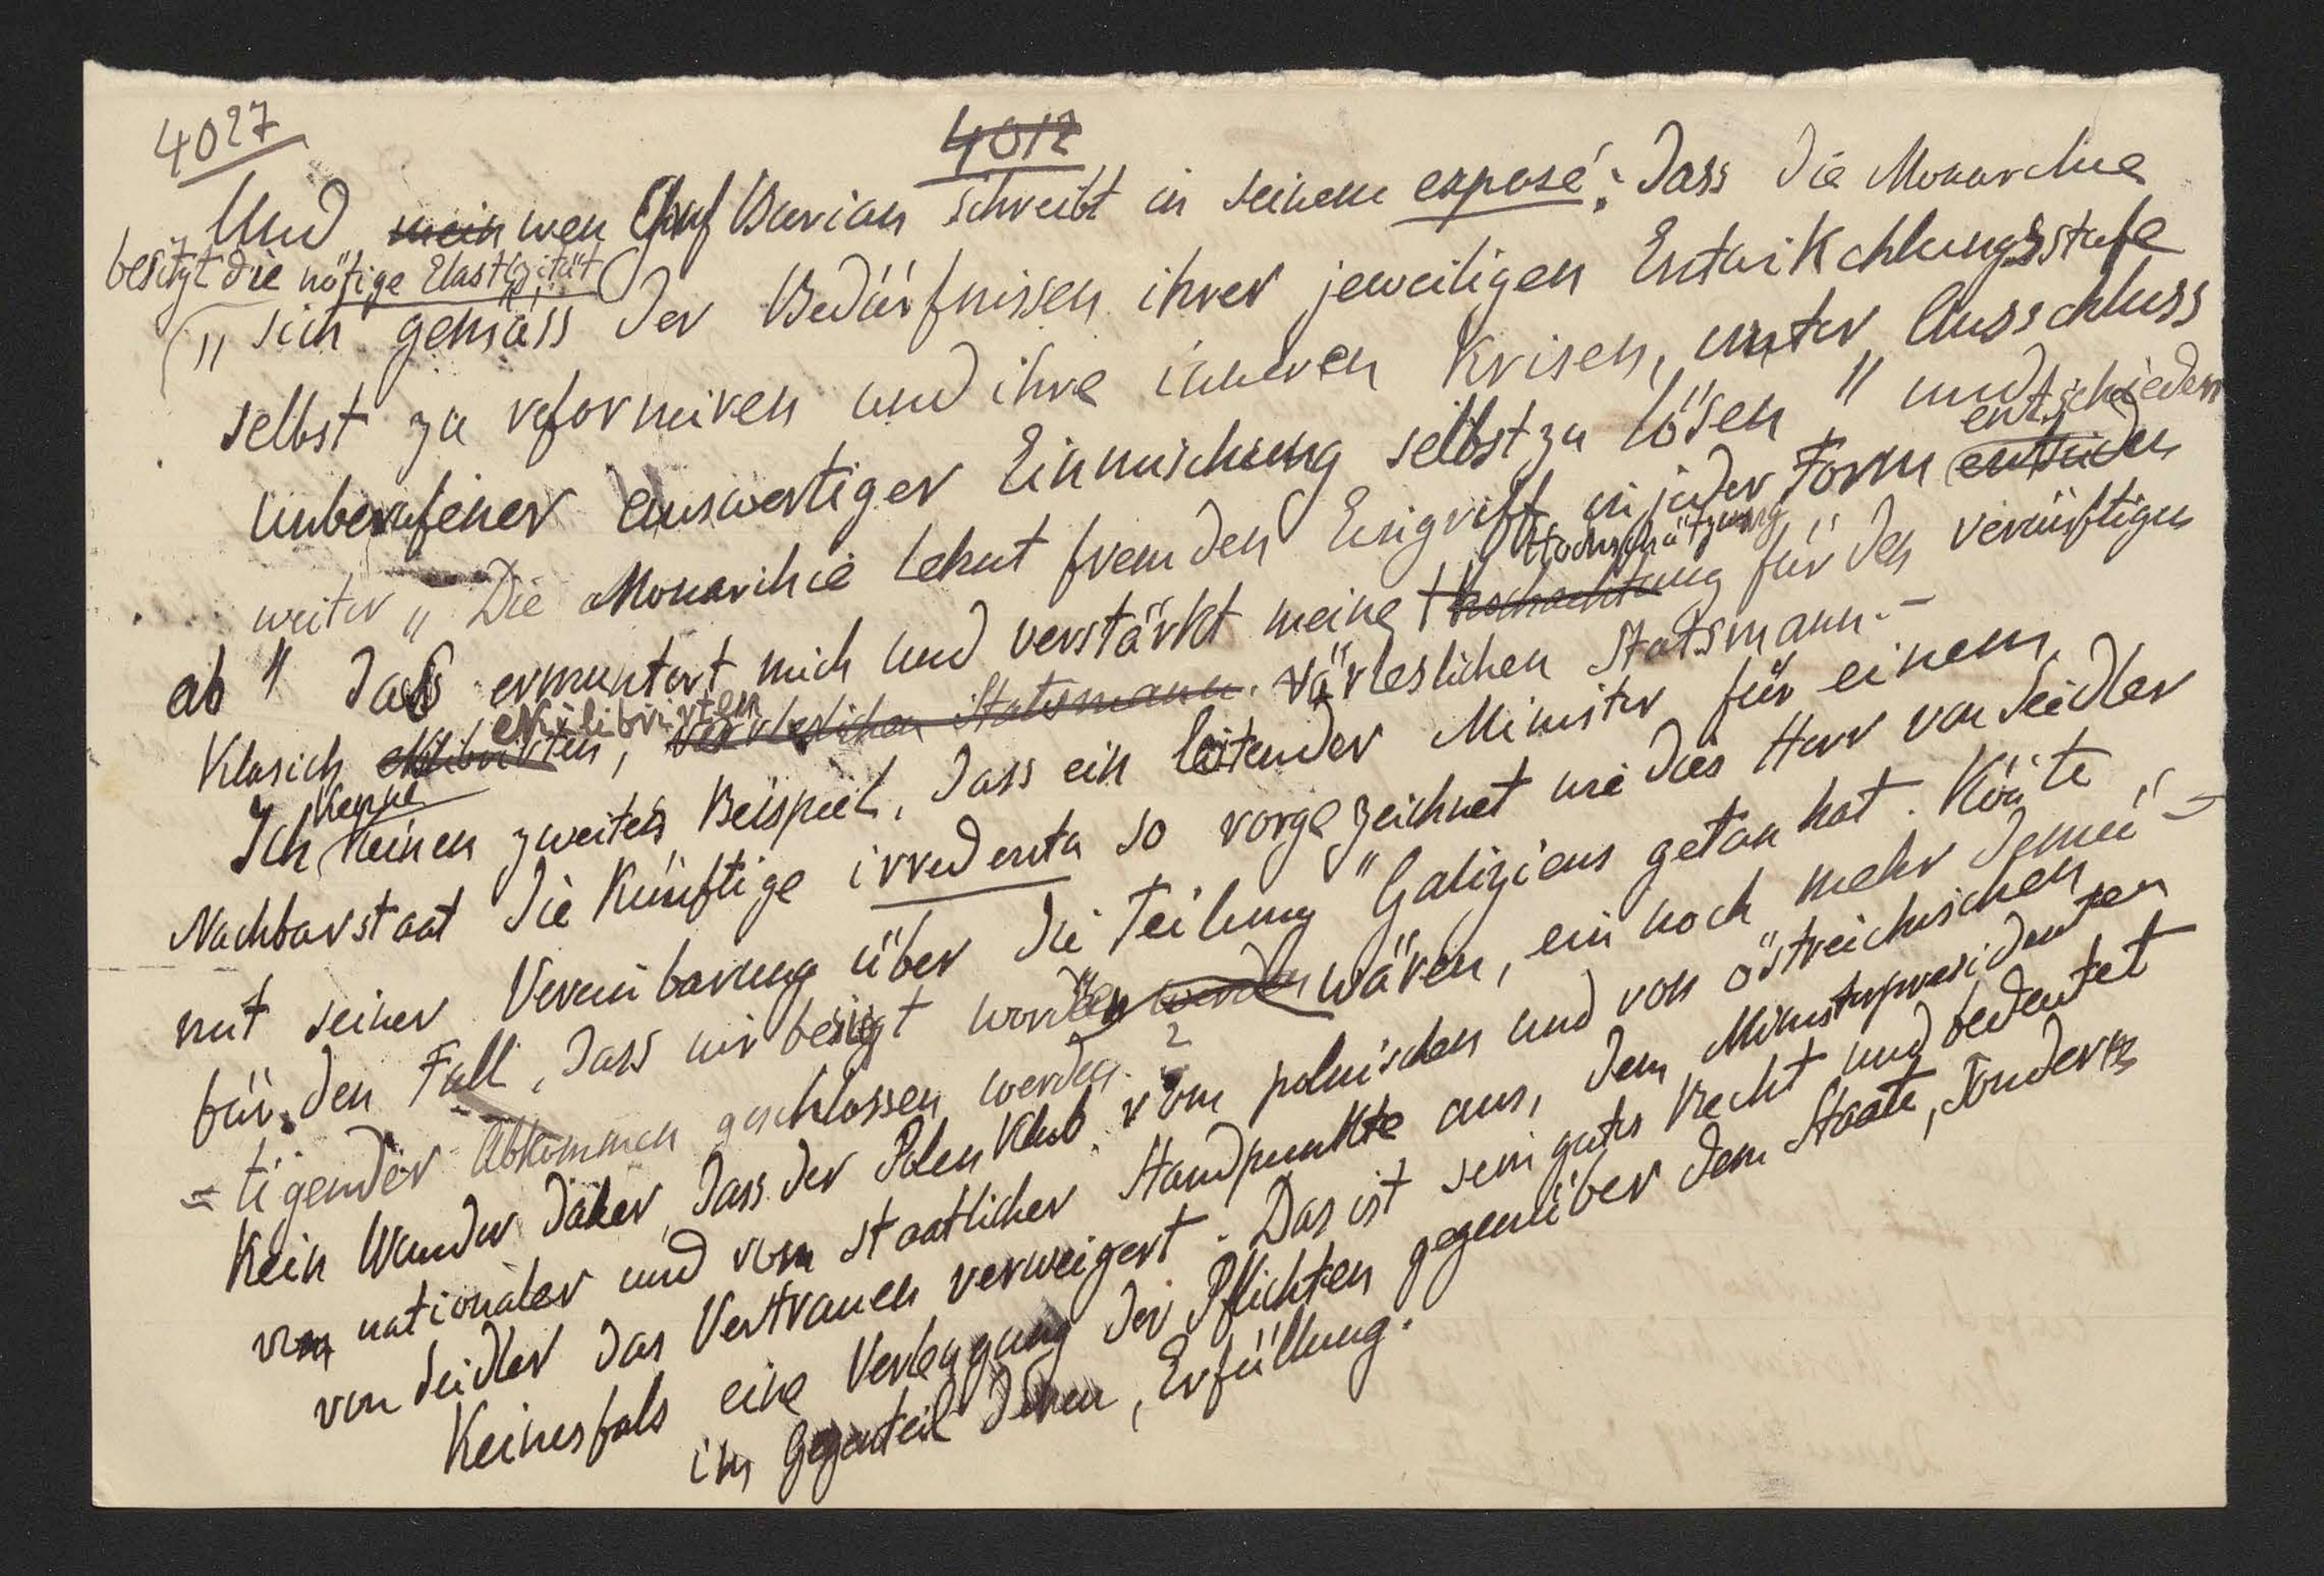 4027
4012
Und mein wen Graf Burian schreibt in seinem exposé: dass die Monarchie
besitzt die nötige Elastizität
„sich gemäss der Bedürfnissen ihrer jeweiligen Entwikchlungsstufe
selbst zu reformiren und ihre inneren Krisen, unter Ausschluss
Unberufener auswertiger Einmischung selbst zu lösen" und
entschieden
weiter „Die Monarchie lehnt fremden Eingriff in jeder Form
Hochschätzung
ab" das ermuntert mich und verstärkt meine Hochachtung für den vernüftigen
ekilibrirten
Klasich ekilibrirten, värleslichen Statsmann. värleslichen Statsmann.-
kenne
Ich keinen zweiten Beispiel, dass ein leitender Minister für einem
Nachbarstaat die Künftige irredenta so vorgezeichnet wie dies Herr von Seidler
mit seiner Vereinbarung über die Teilung Galiziens getan hat. Könte
für den Fall, dass wir besiegt worden werden wären, ein noch mehr demü-
=tigender Abkommen geschlossen werden?
Kein Wunder daher, dass der Polen Klub vom polnischen und von östreichischen
von nationaler und vom staatlicher Standpunkte aus, dem Ministerpresidenten
von Seidler das Vertrauen verweigert. Das ist sein gutes Recht und bedeutet
Keinesfals eine Verleugung der Pflichten gegenüber dem Staate, sondern
im Gegenteil deren, Erfüllung.